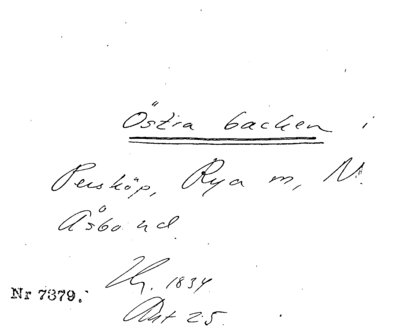 Östra backen i
Persköp, Rya m, N.
Åsbo hd.
Nr 7379.
Hy. 1834
Akt 25.